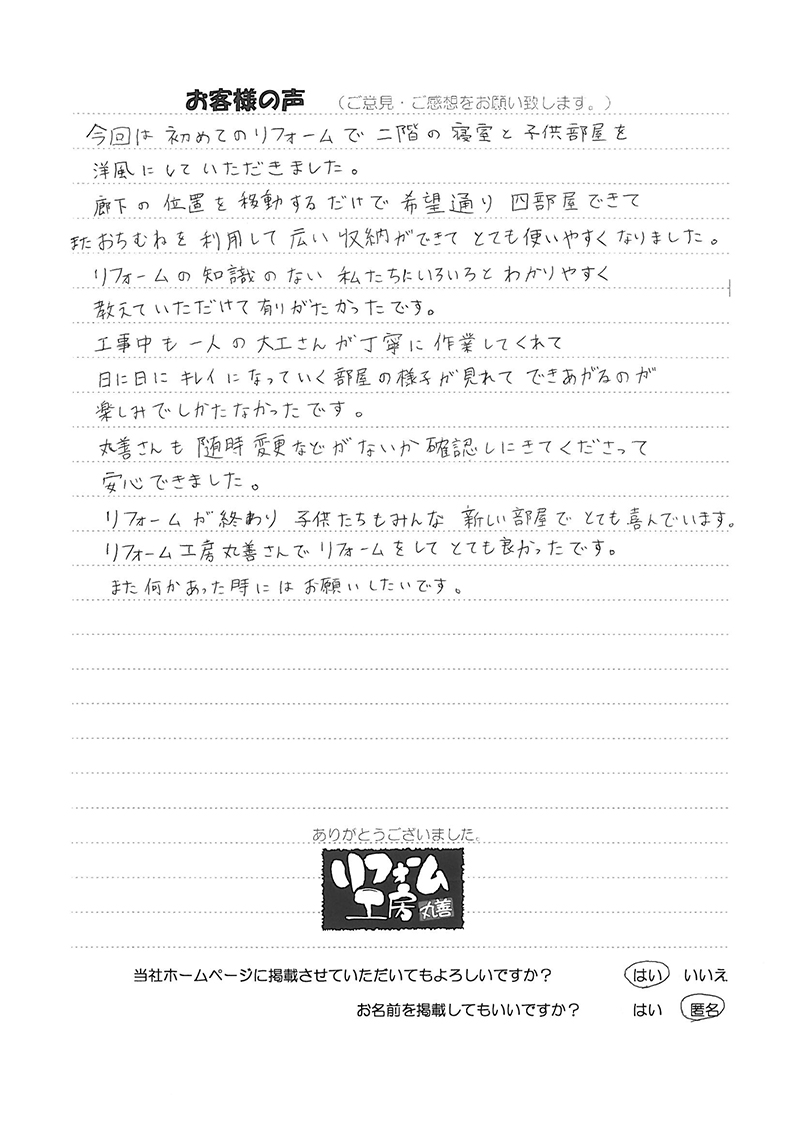 お客様の声 （ご意見・ご感想をお願い致します。）
今回は 初めてのリフォームで 二階の寝室と子供部屋を
洋風にしていただきました。
廊下の位置を移動するだけで希望通り 四部屋できて
またおちむねを利用して広い収納ができてとても使いやすくなりました。
リフォームの知識のない私たちにいろいろとわかりやすく
教えていただけて有りがたかったです。
工事中も一人の大工さんが丁寧に作業してくれて
日に日にキレイになっていく部屋の様子が見れてできあがるのが
楽しみでしかたなかったです。
丸善さんも随時変更などがないか確認しにきてくださって
安心できました。
リフォームが終わり 子供たちもみんな 新しい部屋でとても喜んでいます。
リフォーム工房丸善さんでリフォームをしてとても良かったです。
また何かあった時にはお願いしたいです。
ありがとうございました。
リフォーム
工房 丸善
当社ホームページに掲載させていただいてもよろしいですか？ はい いいえ
お名前を掲載してもいいですか？ はい 匿名